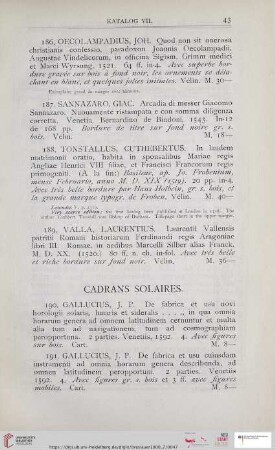 KATALOG VII. 43
186. OECOLAMPADIUS, JOH. Quod non sit onerosa
christianis confessio, paradoxon Joannis Oecolampadii.
Augustae Vindelicorum, in officina Sigism. Grimm medici
et Marci Wyrsung, 1521. 64 ff. in-4. Avec superbe bor-
dure gravée sur bois à fond noir, les ornements se déta-
chant en blanc, et quelques jolies initiales. Vélin. M. 30—
187. SANNAZARO, GIAC. Arcadia di messer Giacomo
Sannazaro. Nuouamente ristampata e con somma diligenza
corretta. Venetia, Bernardino de Bindoni, 1543. In-12
de 168 pp. Bordure de titre sur fond noir gr. s.
bois. Vélin. M. 18—
188. TONSTALLUS, CUTHEBERTUS. In laudem
matrimonii oratio, habita in sponsalibus Mariae regis
Angliae Henrici VIII filiae, et Francisci Francorum regis
primogeniti. (A la fin:) Basileae, ap. Jo. Frobenium,
mense Februario, anno M. D. XIX (1519). 20 pp. in-4.
Avec très belle bordure par Hans Holbein, gr. s. bois, et
la grande marque typogr. de Froben. Vélin. M. 40—
189. VALLA, LAURENTIUS. Laurentii Vallensis
patritii Romani historiarum Ferdinandi regis Aragoniae
libri III. Romae, in aedibus Marcelli Silber alias Franck,
M. D. XX. (1520.) 80 ff. n. ch. in-fol. Avec très belle
et riche bordure sur fond noir. Vélin. M. 36—
CADRANS SOLAIRES.
190. GALLUCIUS, J. P. De fabrica et usu novi
horologii solaris, lunaris et sideralis . . . ., in qua omnia
horarum genera ad omnem latitudinem cernuntur et multa
alia tum ad navigationem, tum ad cosmographiam
peropportuna. 2 parties. Venetiis, 1592. 4. Avec figures
sur bois. Cart. M. 8—
191. GALLUCIUS, J. P. De fabrica et usu cuiusdam
instrumenti ad omnia horarum genera describenda, ad
omnem latitudinem peropportuni 2 parties Venetiis
1592. 4. Avec figures gr. s. bois et 3 ff. avec figures
mobiles. Cart. M. 8—